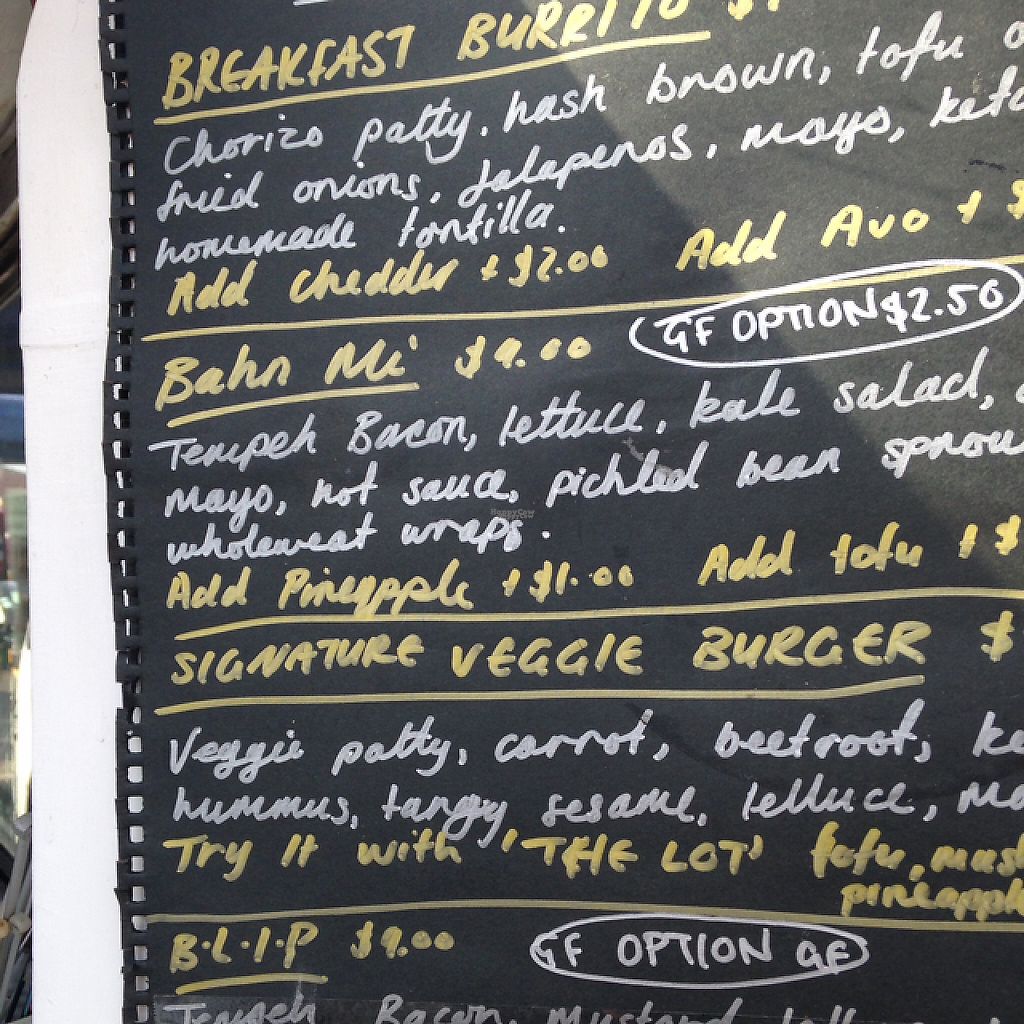 BREAKFAST BURRITO $
Chorizo patty, hash brown, tofu
fried onions, Jalapenos, mayo,
homemade tortilla.
Add Cheddar + $2.00 Add Avo + $
GF OPTION $2.50
Bahn Mi $9.00
Tempeh Bacon, lettuce, kale salad,
mayo, hot sauce, pickled bean
wholeweat wraps.
Add Pineapple + $1.00 Add tofu + $
SIGNATURE VEGGIE BURGER $
Veggie patty, carrot, beetroot,
hummus, tangy sesame, lettuce,
Try It with 'THE LOT' tofu,
pineapple
B.L.I.P $9.00 GF OPTION GF
Tempeh Bacon, Mustard
HappyCow